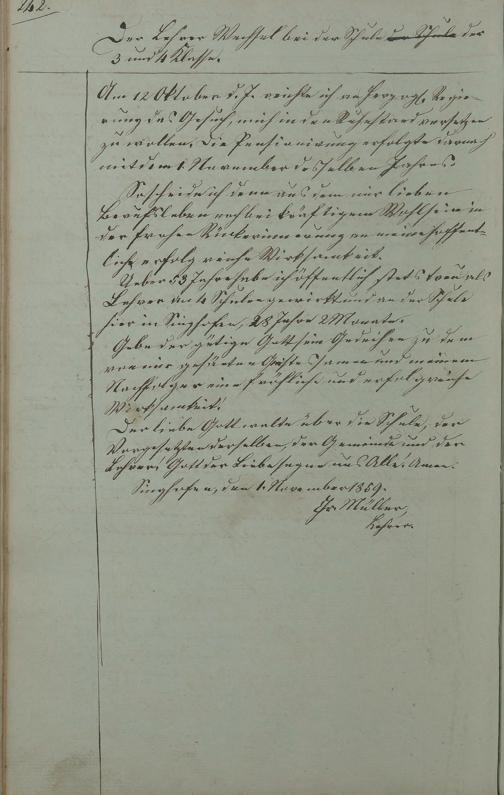 242.
Der Lehrer Wechsel bei der Schule der Schule der
3 und 4 Klasse.
Am 12 Oktober d. J. reichte ich an Herzogl. Regie-
rung das Gesuch, mich in den Ruhestand versetzen
zu wollen. Die Pensionirung erfolgte darnach
mit dem 1. November desselben Jahres.
So scheide ich denn aus dem mir lieben
Berufsleben noch bei kräftigem Wohlsein in
der frohen Rückerinnerung an meine hoffent-
lich erfolgreiche Wirksamkeit.
Ueber 53 Jahre habe ich öffentlich, stets treu als
Lehrer an 4 Schulen gewirkt und an der Schule
hier in Singhofen, 28 Jahre 2 Monate.
Gebe der gütige Gott sein Gedeihen zu dem
von mir gesäeten Samen und meinem
Nachfolger eine fröhliche und erfolgreiche
Wirksamkeit!
Der liebe Gott walte über die Schule, der
Vorgesetzten derselben, der Gemeinde und der
Lehrer! Gott der Liebe segne uns Alle! Amen.
Singhofen, den 1. November 1859.
Müller,
Lehrer.